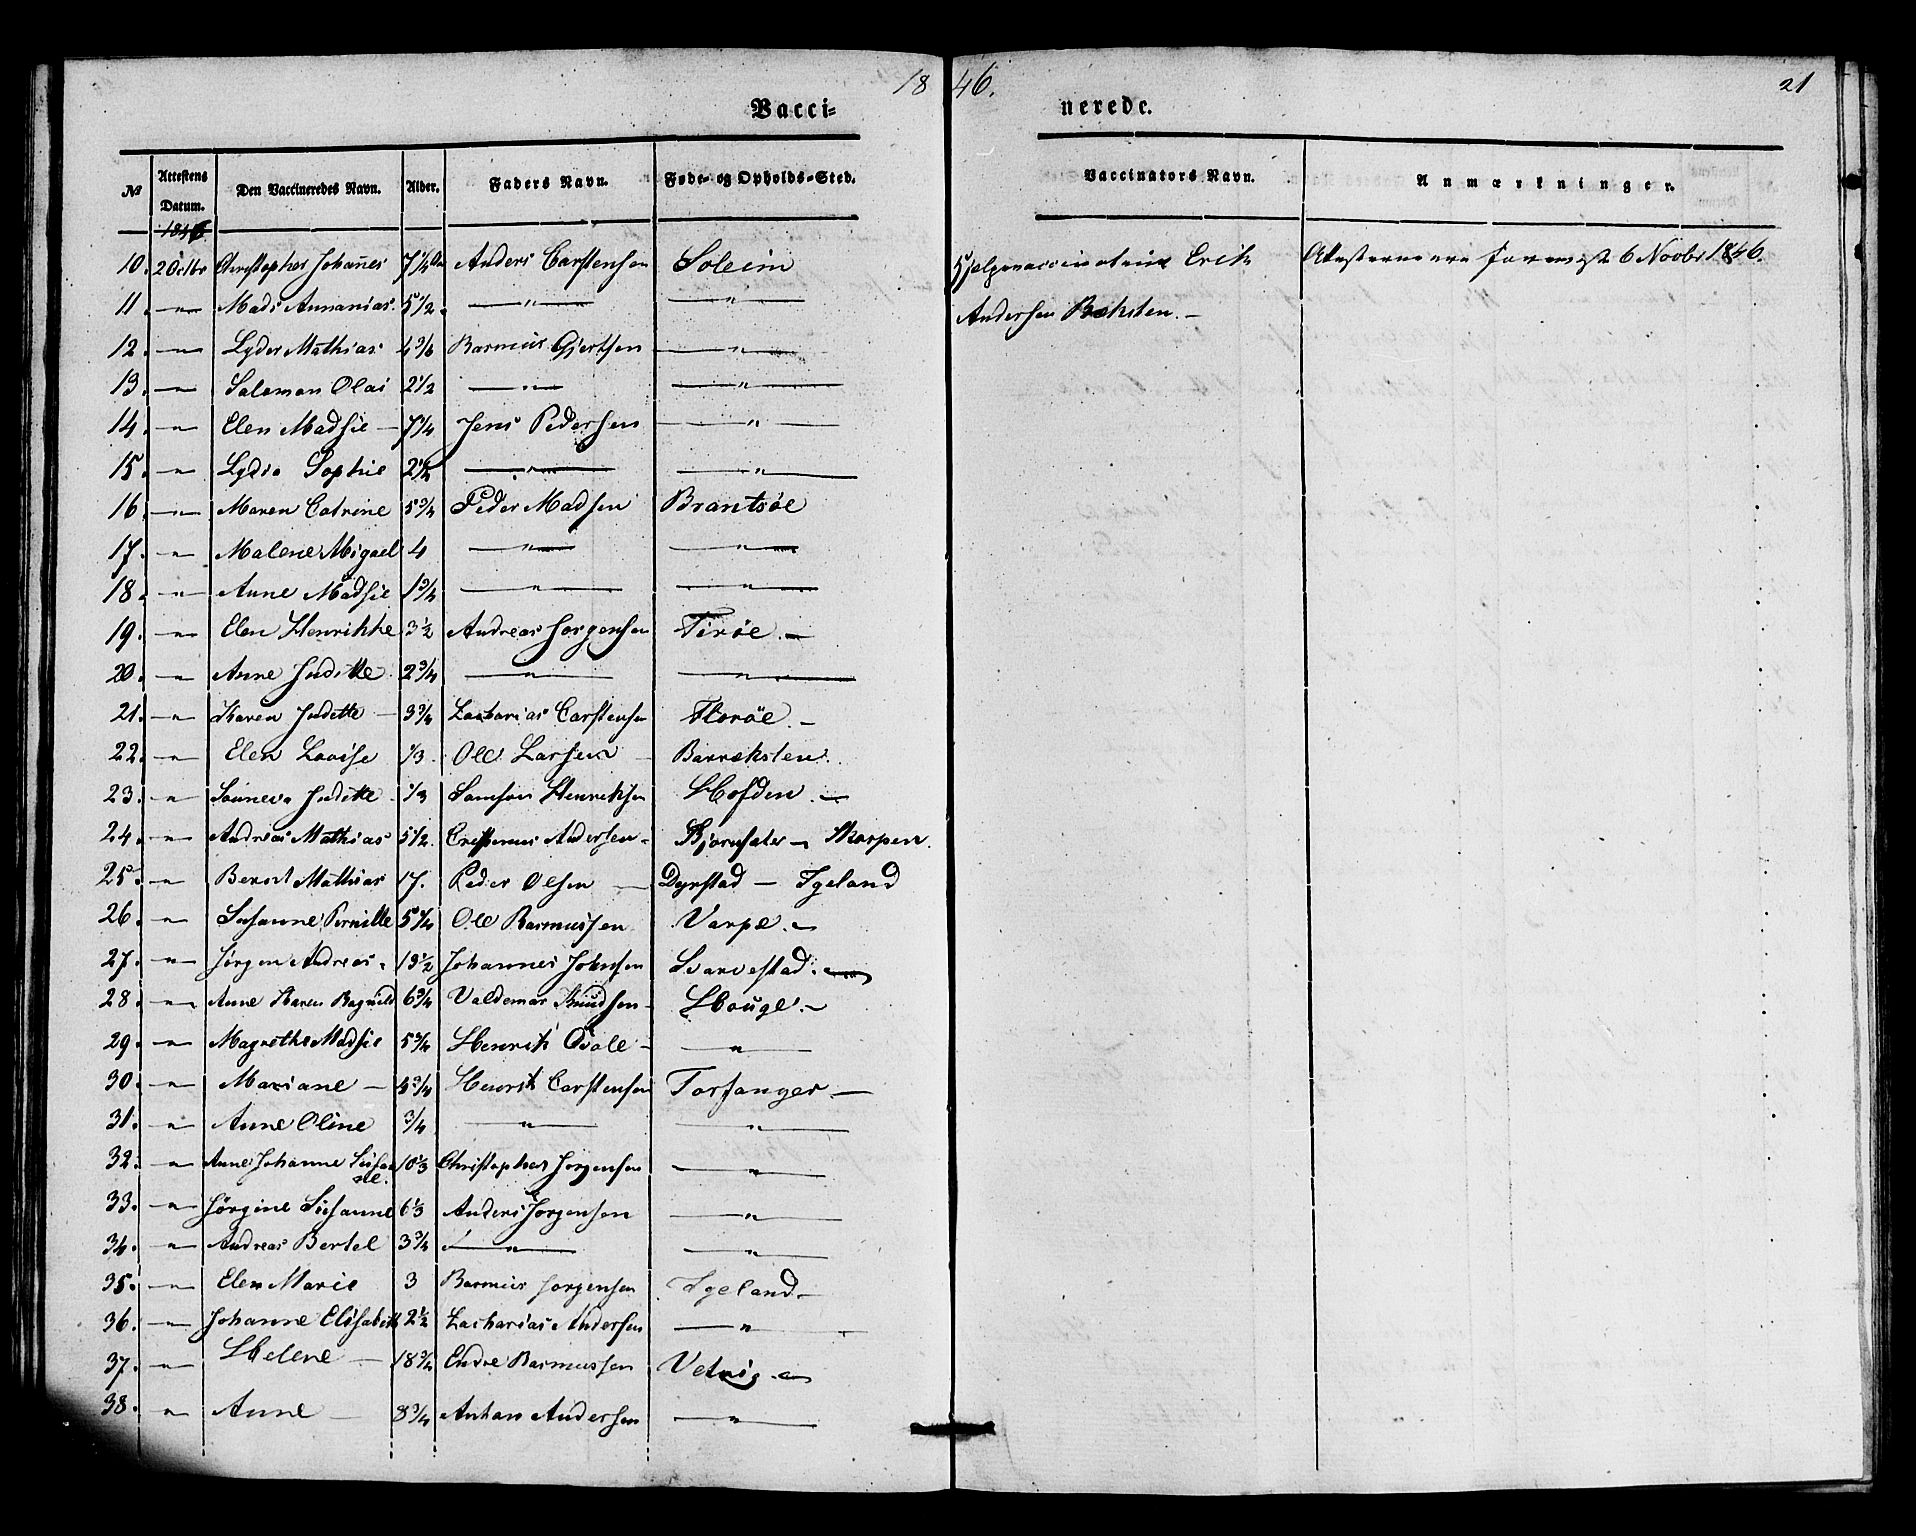 1846. 21
Vaccinerede.
№ Attestens Datum. Den Vaccineredes Navn. Alder. Faders Navn. Føde- og Opholds-Sted. Vaccinators Navn. Anmærkninger.
1846
10. 2 Octbr Christopher Johannes 7 1/4 Anders Carstensen Soleim Hjelpevaccinateur Erik Attesterne ere forevist 6 Novbr 1846.
11. — " — Mads Annanias. 5 1/2. — " — — " — Andersen Bæksten. —
12. — " — Lyder Mathias 4 3/6 Rasmus Gjertsen — " —
13. — " — Salomon Olai 2 1/2 — " — — " —
14. — " — Elen Madsie — 7 1/4 Jens Pedersen — " —
15. — " — Lydia Sophie 2 1/2 — " — — " —
16. — " — Maren Catrine 5 3/4 Peder Madsen Brantsøe
17. — " — Malene Migael 4 — " — — " —
18. — " — Anne Madsie 1 3/4 — " — — " —
19. — " — Elen Henrikke 3 1/2 Andreas Jørgensen Terøe. —
20. — " — Anne Juditte 2 3/4 — " — — " —
21. — " — Karen Juditte — 3 3/4 Zacharias Carstensen Florøe. —
22. — " — Elen Lovise 1/3 Ole Larsen — Barræksten.
23. — " — Sønneva Juditte 1/3 Samson Henriksen Hofden. —
24. — " — Andreas Mathias 5 1/2. Andersen — — Skorpen.
25. — " — Berent Mathias 17. Peder Olsen — Dyrstad — Igeland
26. — " — Susanne Pernille 5 3/4 Ole Rasmussen Varpe. —
27. — " — Jørgen Andreas. 19 1/2 Johannes Johnsen Svarvestad. —
28. — " — Anne Karen Ragnild 6 3/4 Valdemar Knudsen — Houge. —
29. — " — Magrethe Madsie 5 3/4 Henrik Qvale — — " —
30. — " — Mariane — 4 3/4 Henrik Carstensen Torfanger —
31. — " — Anne Oline 3/4 — " — — " —
32. — " — Anne Johanne Susanne. 10 1/3 Christopher Jørgensen — " —
33. — " — Jørgine Susanne 6 1/3 Anders Jørgensen — " —
34. — " — Andreas Bertel 3 3/4 — " — — " —
35. — " — Elen Marie 3 Rasmus Jørgensen Igeland. —
36. — " — Johanne Elisabeth 2 1/2 Zacharias Andersen — " —
37. — " — Helene — 18 3/4 Endre Rasmussen Vetvig. —
38. — " — Anne — 8 3/4 Anthon Andersen — " —